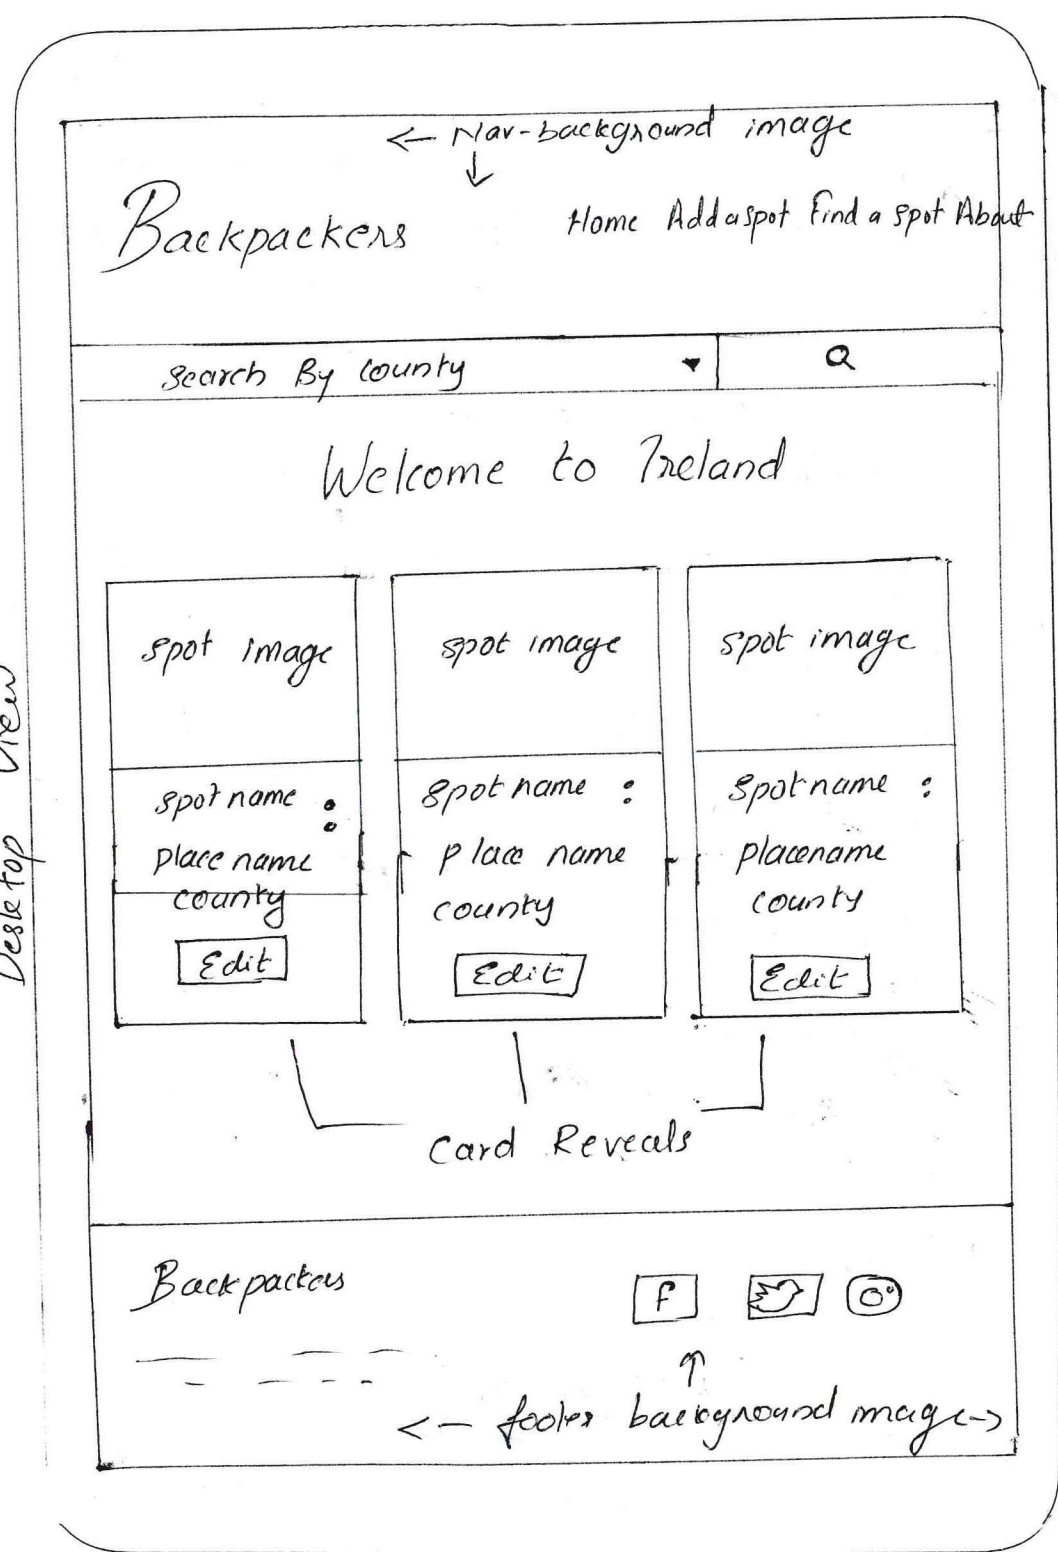 <- Nav-background image
Backpackers
Home Add a spot Find a spot About
Search By County
Welcome to Ireland
spot image
spot name :
place name
county
Edit
spot image
spot name :
place name
county
Edit
spot image
spot name :
placename
county
Edit
Card Reveals
Backpackers
f
<- footer background image ->
Desktop View